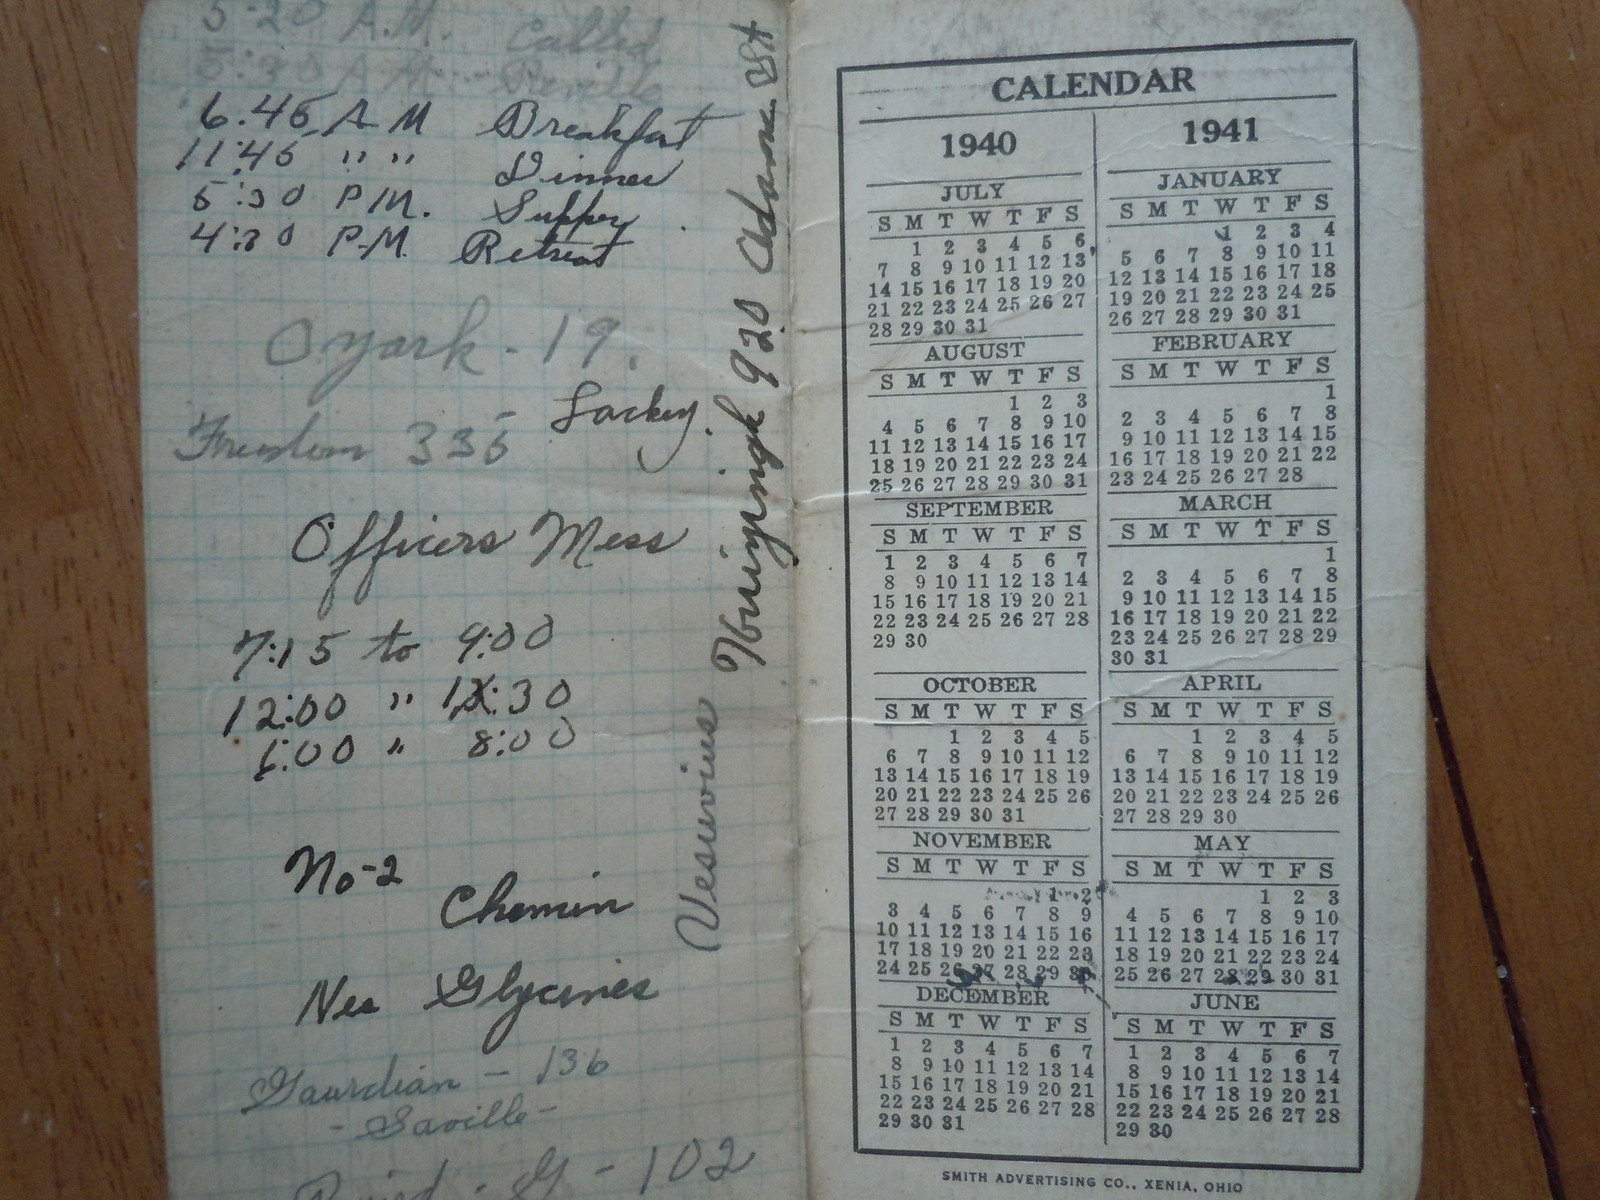 5:20 A.M. Called
5:30 A.M. Reville
6.45 A M Breakfast
11:45 " " Dinner
5:30 P.M. Supper
4:30 P.M. Retreat
Ozark - 19.
Lackey.
Freedom 335
Officers Mess
7:15 to 9:00
12:00 " 1:30
6:00 " 8:00
No-2
Chemin
Nes Glycines
Gaurdian - 136
- Saville -
G - 102
Vesuvius
920 Adams St
CALENDAR
1940
JULY
S M T W T F S
1 2 3 4 5 6
7 8 9 10 11 12 13
14 15 16 17 18 19 20
21 22 23 24 25 26 27
28 29 30 31
AUGUST
S M T W T F S
1 2 3
4 5 6 7 8 9 10
11 12 13 14 15 16 17
18 19 20 21 22 23 24
25 26 27 28 29 30 31
SEPTEMBER
S M T W T F S
1 2 3 4 5 6 7
8 9 10 11 12 13 14
15 16 17 18 19 20 21
22 23 24 25 26 27 28
29 30
OCTOBER
S M T W T F S
1 2 3 4 5
6 7 8 9 10 11 12
13 14 15 16 17 18 19
20 21 22 23 24 25 26
27 28 29 30 31
NOVEMBER
S M T W T F S
1 2
3 4 5 6 7 8 9
10 11 12 13 14 15 16
17 18 19 20 21 22 23
24 25 26 27 28 29 30
DECEMBER
S M T W T F S
1 2 3 4 5 6 7
8 9 10 11 12 13 14
15 16 17 18 19 20 21
22 23 24 25 26 27 28
29 30 31
1941
JANUARY
S M T W T F S
1 2 3 4
5 6 7 8 9 10 11
12 13 14 15 16 17 18
19 20 21 22 23 24 25
26 27 28 29 30 31
FEBRUARY
S M T W T F S
1
2 3 4 5 6 7 8
9 10 11 12 13 14 15
16 17 18 19 20 21 22
23 24 25 26 27 28
MARCH
S M T W T F S
1
2 3 4 5 6 7 8
9 10 11 12 13 14 15
16 17 18 19 20 21 22
23 24 25 26 27 28 29
30 31
APRIL
S M T W T F S
1 2 3 4 5
6 7 8 9 10 11 12
13 14 15 16 17 18 19
20 21 22 23 24 25 26
27 28 29 30
MAY
S M T W T F S
1 2 3
4 5 6 7 8 9 10
11 12 13 14 15 16 17
18 19 20 21 22 23 24
25 26 27 28 29 30 31
JUNE
S M T W T F S
1 2 3 4 5 6 7
8 9 10 11 12 13 14
15 16 17 18 19 20 21
22 23 24 25 26 27 28
29 30
SMITH ADVERTISING CO., XENIA, OHIO